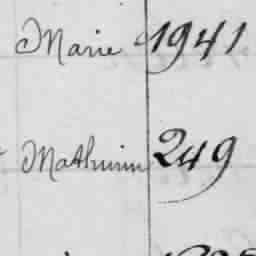 Marie 1941
Mathurin 249